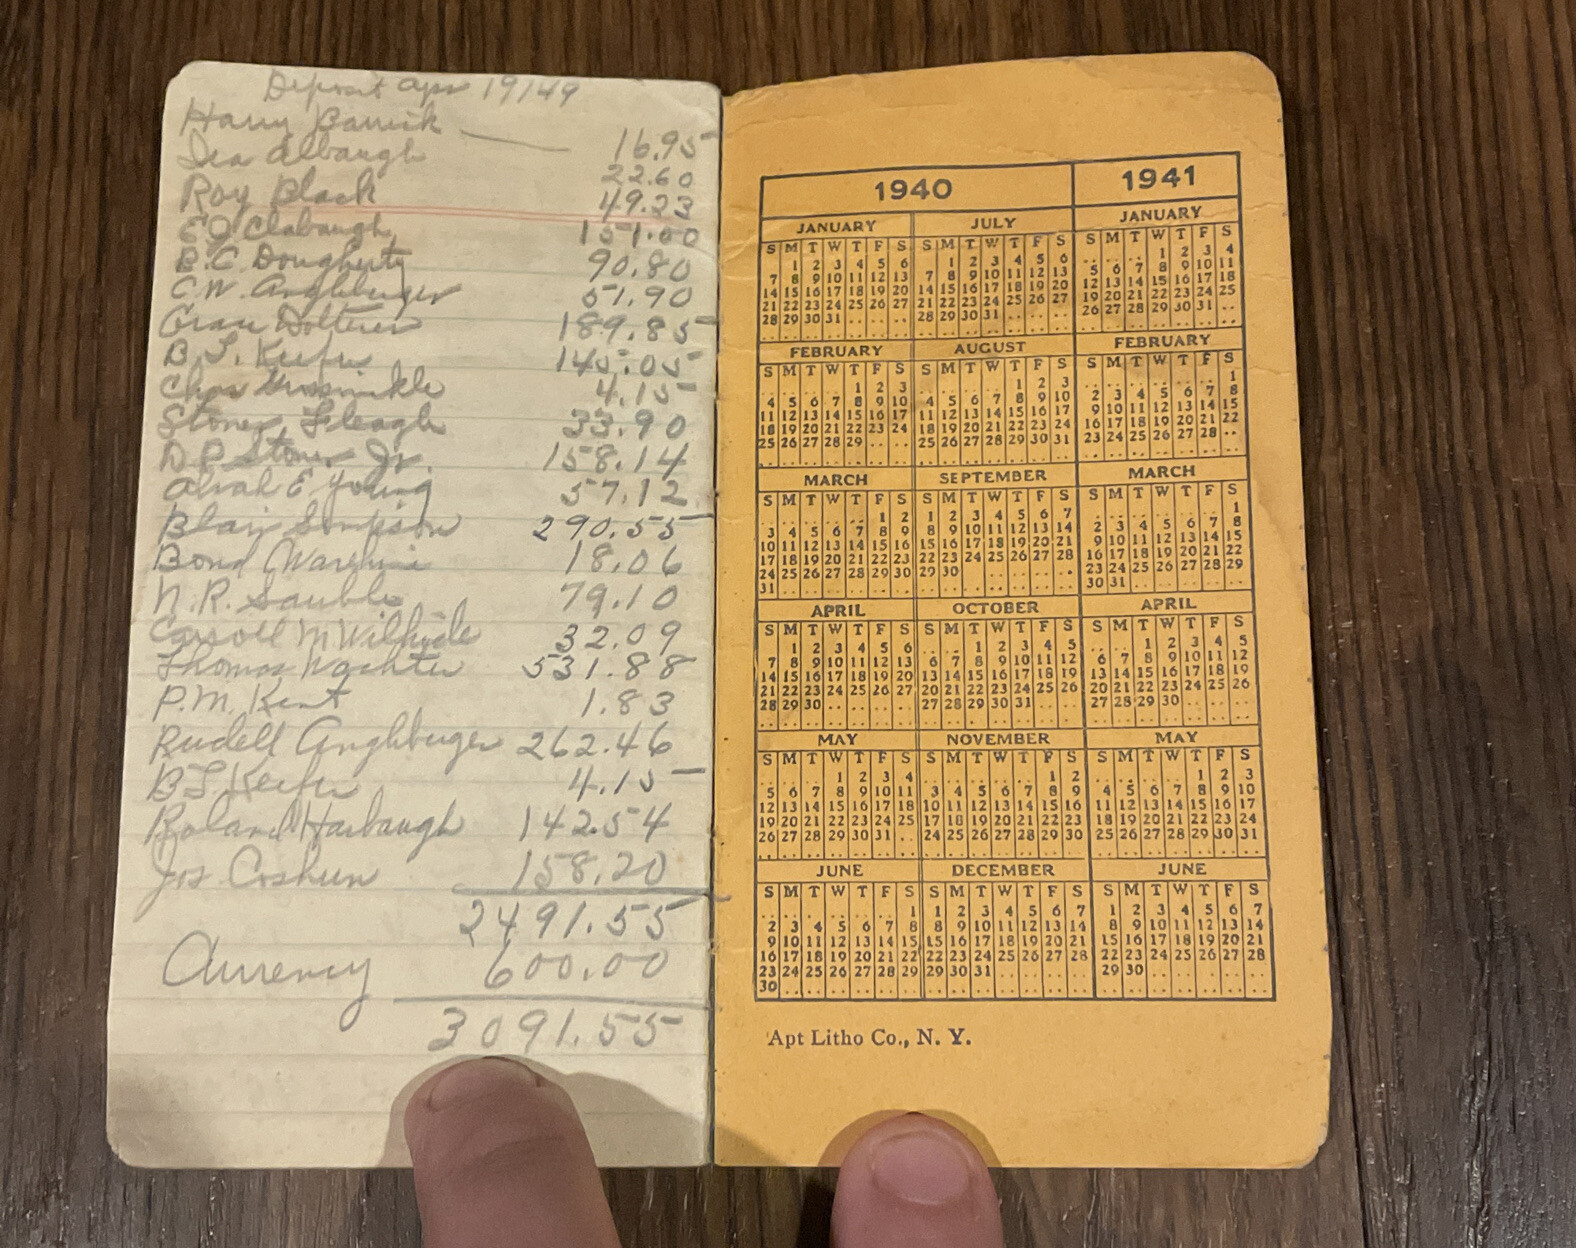 Deposit Apr 19/49
Harry Barrick — 16.95
Ira Albaugh 22.60
Roy Black 49.23
E J Clabaugh 151.00
B.C. Dougherty 90.80
C.W. Anghberger 51.90
189.85
B. L. Keefer 145.05
Chas 4.15
Stoner Fleagle 33.90
D P Stoner Jr. 158.14
Alvah E Young 57.12
Blair Simpson 290.55
Bond 18.06
N. R. Sauble 79.10
Carroll M Wilhide 32.09
Thomas Wachter 531.88
P.M. Kent 1.83
Rudell Anghberger 262.46
B L Keefer 4.15
Roland Harbaugh 142.54
Jos Coshun 158.20
2491.55
Currency 600.00
3091.55
1940
JANUARY
S M T W T F S
1 2 3 4 5 6
7 8 9 10 11 12 13
14 15 16 17 18 19 20
21 22 23 24 25 26 27
28 29 30 31
FEBRUARY
S M T W T F S
1 2 3
4 5 6 7 8 9 10
11 12 13 14 15 16 17
18 19 20 21 22 23 24
25 26 27 28 29
MARCH
S M T W T F S
1 2
3 4 5 6 7 8 9
10 11 12 13 14 15 16
17 18 19 20 21 22 23
24 25 26 27 28 29 30
31
APRIL
S M T W T F S
1 2 3 4 5 6
7 8 9 10 11 12 13
14 15 16 17 18 19 20
21 22 23 24 25 26 27
28 29 30
MAY
S M T W T F S
1 2 3 4
5 6 7 8 9 10 11
12 13 14 15 16 17 18
19 20 21 22 23 24 25
26 27 28 29 30 31
JUNE
S M T W T F S
1
2 3 4 5 6 7 8
9 10 11 12 13 14 15
16 17 18 19 20 21 22
23 24 25 26 27 28 29
30
JULY
S M T W T F S
1 2 3 4 5 6
7 8 9 10 11 12 13
14 15 16 17 18 19 20
21 22 23 24 25 26 27
28 29 30 31
AUGUST
S M T W T F S
1 2 3
4 5 6 7 8 9 10
11 12 13 14 15 16 17
18 19 20 21 22 23 24
25 26 27 28 29 30 31
SEPTEMBER
S M T W T F S
1 2 3 4 5 6 7
8 9 10 11 12 13 14
15 16 17 18 19 20 21
22 23 24 25 26 27 28
29 30
OCTOBER
S M T W T F S
1 2 3 4 5
6 7 8 9 10 11 12
13 14 15 16 17 18 19
20 21 22 23 24 25 26
27 28 29 30 31
NOVEMBER
S M T W T F S
1 2
3 4 5 6 7 8 9
10 11 12 13 14 15 16
17 18 19 20 21 22 23
24 25 26 27 28 29 30
DECEMBER
S M T W T F S
1 2 3 4 5 6 7
8 9 10 11 12 13 14
15 16 17 18 19 20 21
22 23 24 25 26 27 28
29 30 31
1941
JANUARY
S M T W T F S
1 2 3 4
5 6 7 8 9 10 11
12 13 14 15 16 17 18
19 20 21 22 23 24 25
26 27 28 29 30 31
FEBRUARY
S M T W T F S
1
2 3 4 5 6 7 8
9 10 11 12 13 14 15
16 17 18 19 20 21 22
23 24 25 26 27 28
MARCH
S M T W T F S
1
2 3 4 5 6 7 8
9 10 11 12 13 14 15
16 17 18 19 20 21 22
23 24 25 26 27 28 29
30 31
APRIL
S M T W T F S
1 2 3 4 5
6 7 8 9 10 11 12
13 14 15 16 17 18 19
20 21 22 23 24 25 26
27 28 29 30
MAY
S M T W T F S
1 2 3
4 5 6 7 8 9 10
11 12 13 14 15 16 17
18 19 20 21 22 23 24
25 26 27 28 29 30 31
JUNE
S M T W T F S
1 2 3 4 5 6 7
8 9 10 11 12 13 14
15 16 17 18 19 20 21
22 23 24 25 26 27 28
29 30
Apt Litho Co., N. Y.